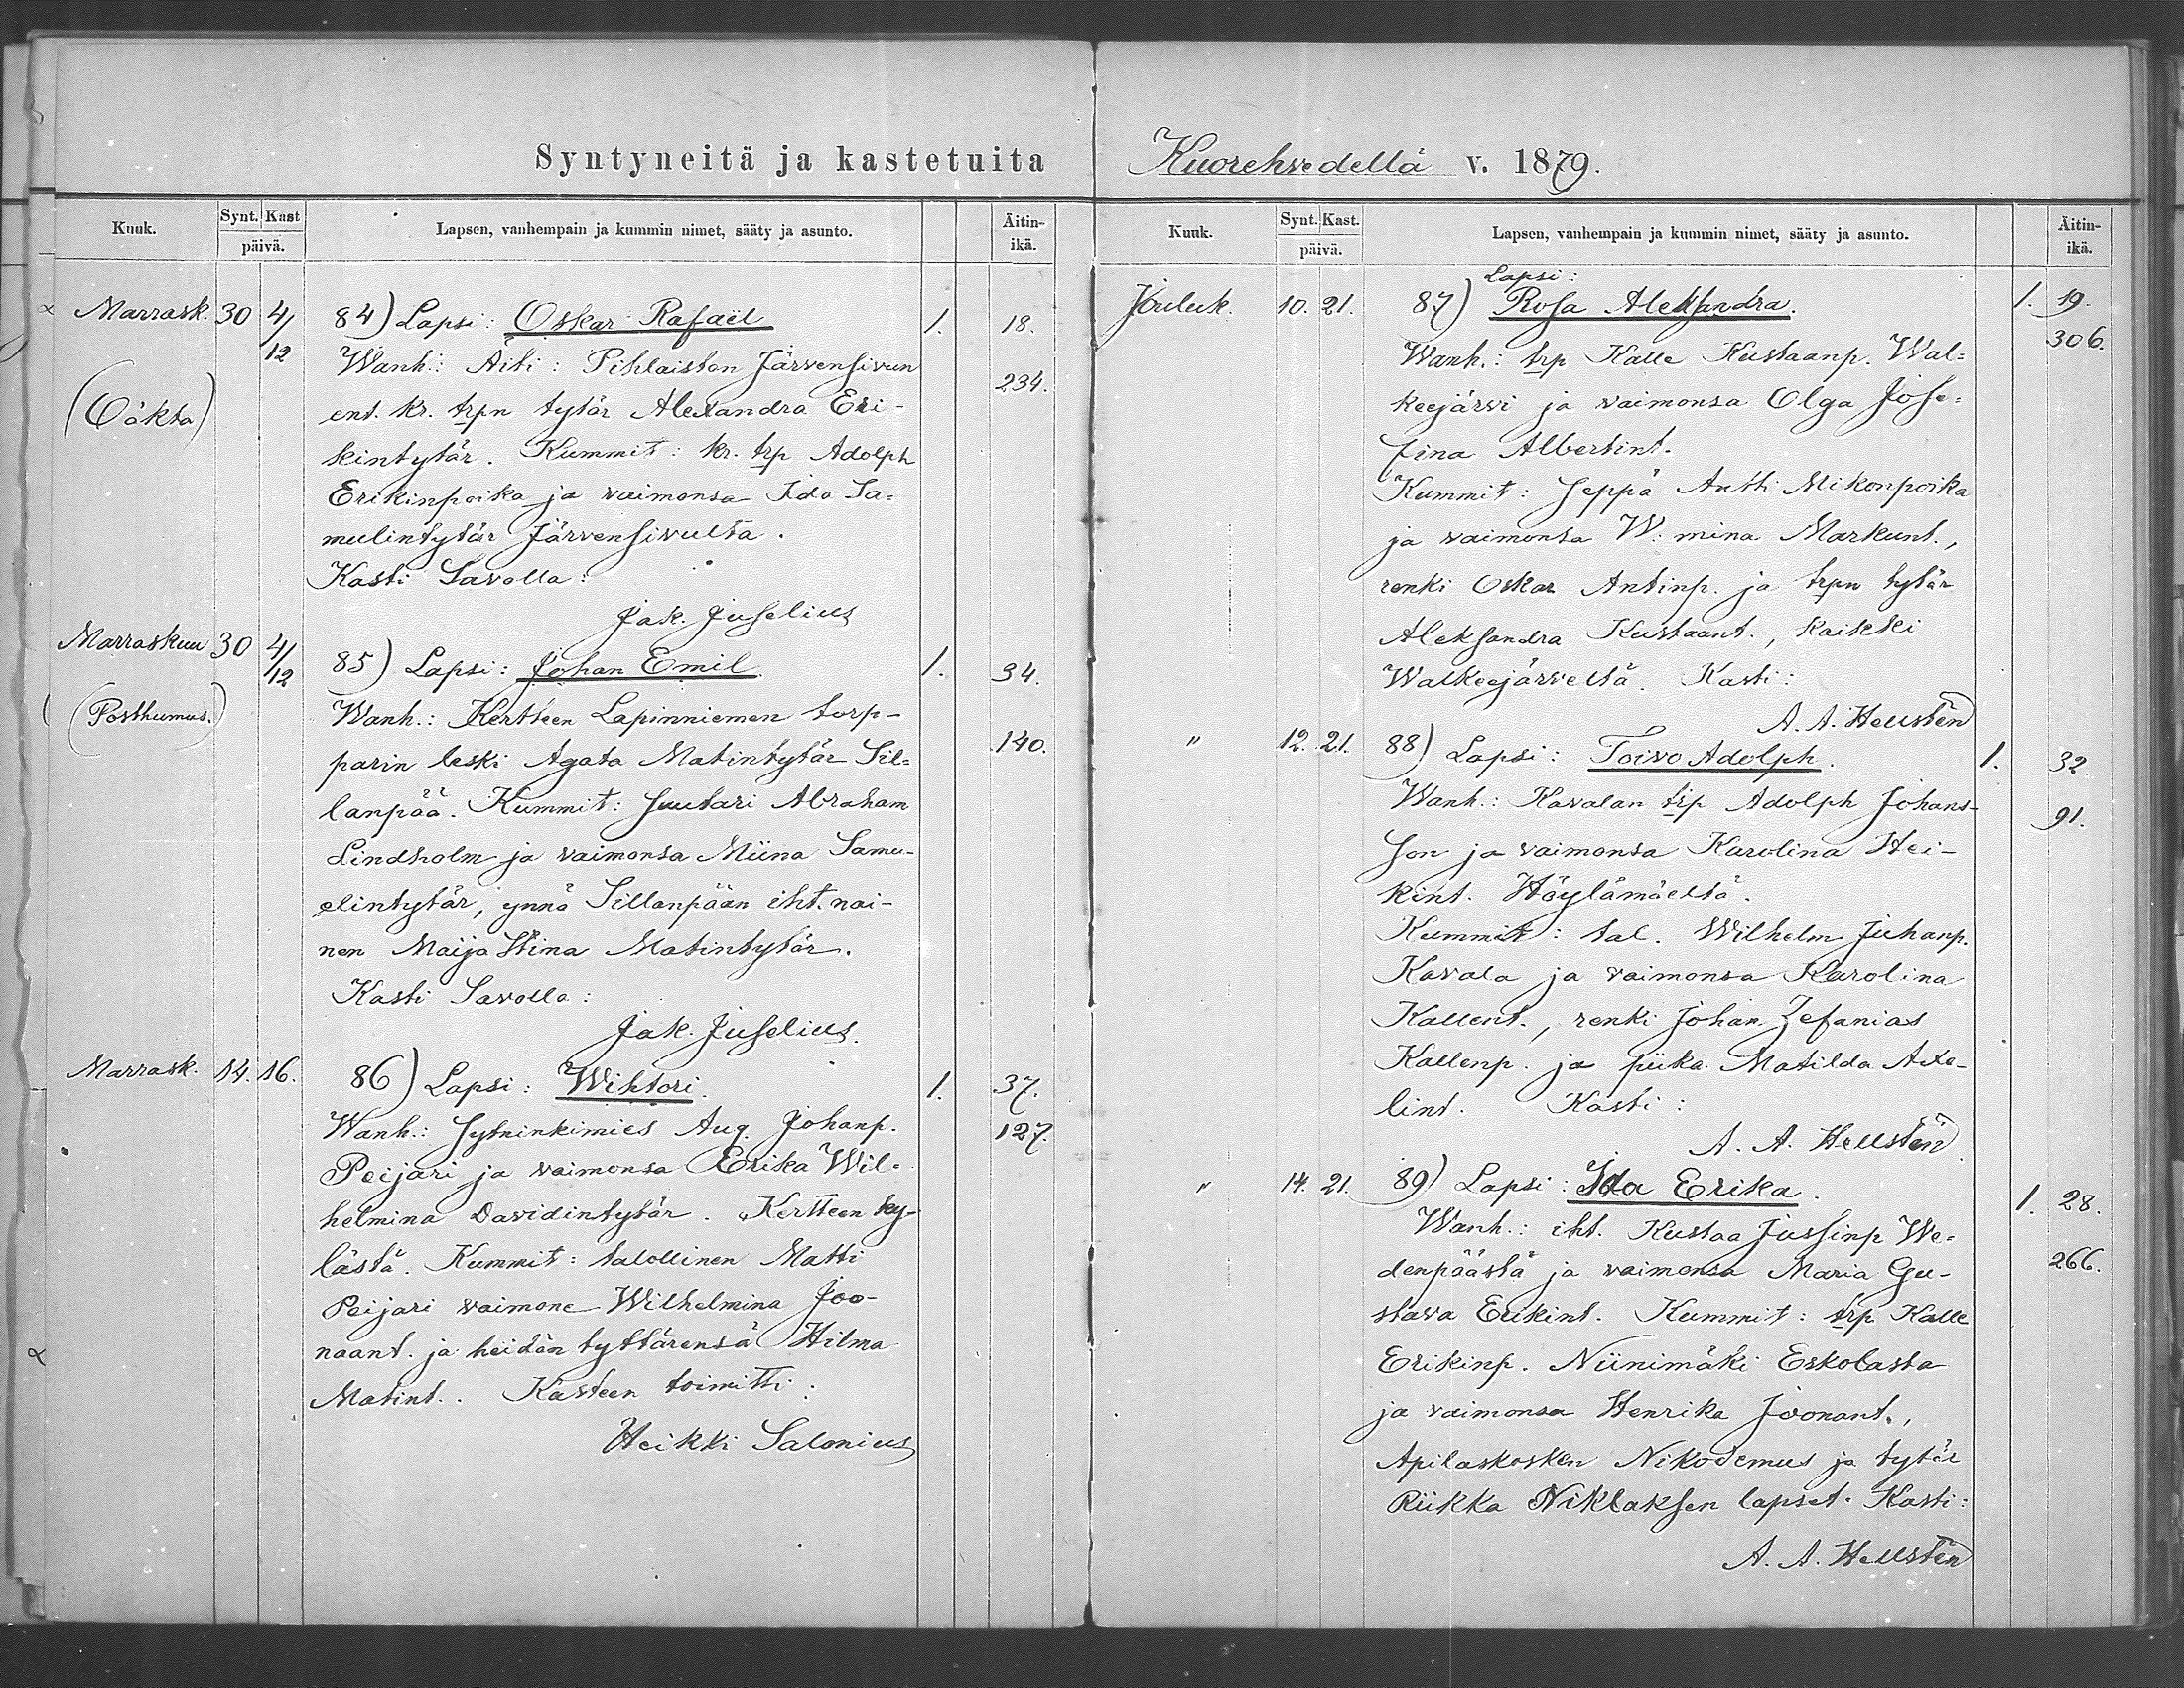 Syntyneitä ja kastetuita
Kuuk. Synt. Kast päivä. Lapsen, vanhempain ja kummin nimet, sääty ja asunto. Äitin-ikä.
Marrask. 30 4/12 84) Lapsi: Oskar Rafaël 1. 18.
Wanh.: Äiti: Pihlaiston Järvensivun 234.
(Oäkta) ent. kr. trpn tytär Alexandra Eri-
kintytär. Kummit: kr. trp Adolph
Erikinpoika ja vaimonsa Ida Sa=
mulintytär Järvensivulta.
Kasti Savolla:
Jak. Juselius
Marraskuu 30 4/12 85) Lapsi: Johan Emil 1. 34.
(Posthumus.) Wanh.: Kertteen Lapinniemen torp-
parin leski Agata Matintytär Sil= 140.
lanpää. Kummit: Suutari Abraham
Lindholm ja vaimonsa Miina Samu-
elintytär, ynnä Sillanpään iht. nai-
nen Maija Stina Matintytär.
Kasti Savolla:
Jak. Juselius.
Marrask. 14. 16. 86) Lapsi: Wihtori. 1. 37.
Wanh.: Sytninkimies Aug. Johanp. 127.
Peijari ja vaimonsa Erika Wil=
helmina Davidintytär. Kertteen ky-
lästä. Kummit: talollinen Matti
Peijari vaimone Wilhelmina Joo-
naant. ja heidän tyttärensä Hilma
Matint. Kasteen toimitti:
Heikki Salonius
Kuorehvedellä v. 1879.
Kuuk. Synt. Kast. päivä. Lapsen, vanhempain ja kummin nimet, sääty ja asunto. Äitin-ikä.
Lapsi:
Jouluk. 10. 21. 87) Rosa Aleksandra. 1. 19.
Wanh.: trp Kalle Kustaanp. Wal= 306.
keejärvi ja vaimonsa Olga Jose=
fina Albertint.
Kummit: Seppä Antti Mikonpoika
ja vaimonsa W:mina Markunt.,
renki Oskar Antinp. ja trpn tytär
Aleksandra Kustaant., kaikki
Walkeejärveltä. Kasti:
A. A. Hellstén
" 12. 21. 88) Lapsi: Toivo Adolph. 1. 32.
Wanh.: Kavalan trp Adolph Johans- 91.
son ja vaimonsa Karolina Hei-
kint. Höylämäeltä.
Kummit: tal. Wilhelm Juhanp.
Kavala ja vaimonsa Karolina
Kallent., renki Johan Zefanias
Kallenp. ja piika Matilda Axe-
lint. Kasti:
A. A. Hellstén
" 14. 21. 89) Lapsi: Ida Erika. 1. 28.
Wanh.: iht. Kustaa Jussinp We=
denpäästä ja vaimonsa Maria Gu- 266.
stava Erikint. Kummit: trp Kalle
Erikinp. Niinimäki Eskolasta
ja vaimonsa Henrika Joonant.,
Apilaskosken Nikodemus ja tytär
Riikka Niklaksen lapset. Kasti:
A. A. Hellstén